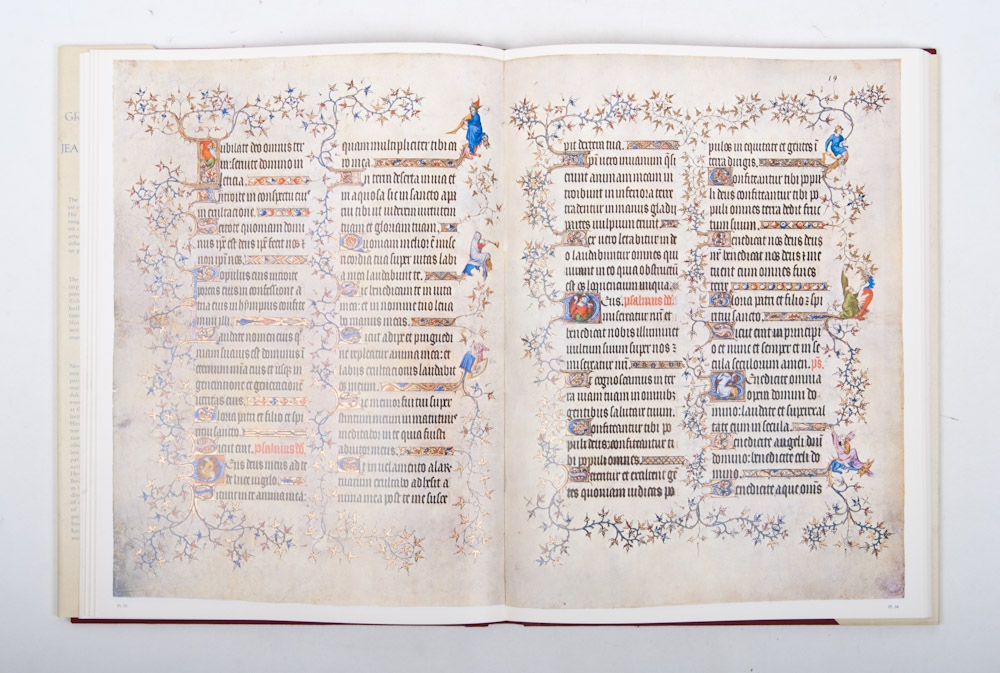 GR
JEA
ubilate deo omnis ter
ra: servite domino in
leticia.
Introite in conspectu eius
in exultacione.
Scitote quoniam domi
nus ipse est deus ipse fecit nos et
non ipsi nos.
Populus eius introite
portas eius in confessione a
tria eius in hympnis confite
mini illi.
audate nomen eius qm
niam suavis est dominus i
eternum mia eius et usque in
generacionem et generacionem
veritas eius.
Gloria patri et filio et spi
ritui sancto.
Sicut erat. psalmus dd.
Deus deus meus ad te
de luce vigilo.
Sitivit in te anima mea:
quam multipliciter tibi ca
ro mea.
In terra deserta invia et
inaquosa sic in sancto apa
rui tibi ut viderem virtutem
tuam et gloriam tuam.
Quoniam melior est mise
ricordia tua super vitas labi
a mea laudabunt te.
Sic benedicam te in vita
mea: et in nomine tuo leva
bo manus meas.
Sicut adipe et pinguedi
ne repleatur anima mea: et
labiis exultacionis laudabit
os meum.
Sic memor fui tui super
stratum meum in matutinis
meditabor in te quia fuisti
adiutor meus.
Et in velamento alar
tuarum exultabo adhesit a
nima mea post te me susce
19
pit dextera tua.
Ipsi vero in vanum quesi
erunt animam meam in
troibunt in inferiora terre
tradentur in manus gladii
partes vulpium erunt.
Rex vero letabitur in de
o laudabuntur omnes qui
iurant in eo quia obstructum
est os loquencium iniqua.
Deus. psalmus dd.
misereatur nostri et
benedicat nobis illuminet
vultum suum super nos et
misereatur nostri.
Ut cognoscamus in ter
ra viam tuam in omnibus
gentibus salutare tuum.
Confiteantur tibi po
puli deus: confiteantur ti
bi populi omnes.
Letentur et exultent gen
tes quoniam iudicas po
pulos in equitate et gentes in
terra dirigis.
Confiteantur tibi popu
li deus confiteantur tibi po
puli omnes terra dedit fruc
tum suum.
Benedicat nos deus deus
noster benedicat nos deus: et me
tuent eum omnes fines
terre.
Gloria patri et filio et spi
ritui sancto.
Sicut erat in principi
o et nunc et semper et in se
cula seculorum amen. ps.
Benedicite omnia
opera domini do
mino: laudate et superexal
tate eum in secula.
Benedicite angeli domini
domino: benedicite celi do
mino.
Benedicite aque omnes